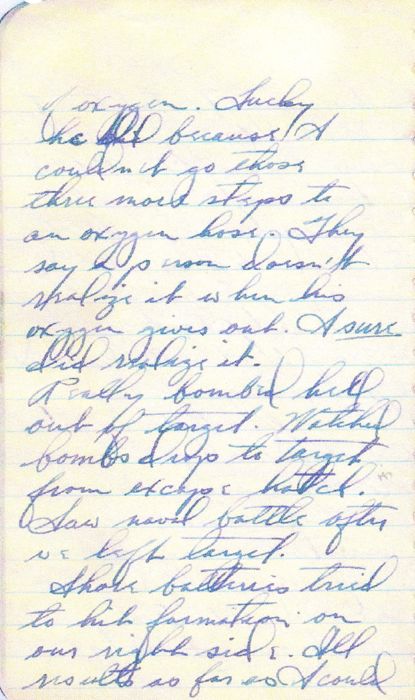 of oxygen. Lucky
he did because I
couldn't go those
three more steps to
an oxygen hose. They
say a person doesn't
realize it when his
oxygen gives out. I sure
did realize it.
Really bombed hell
out of target. Watched
bombs drop to target
from escape hatch.
Saw naval battle after
we left target.
Shore batteries tried
to hit formation on
our right side. All
results as far as I could